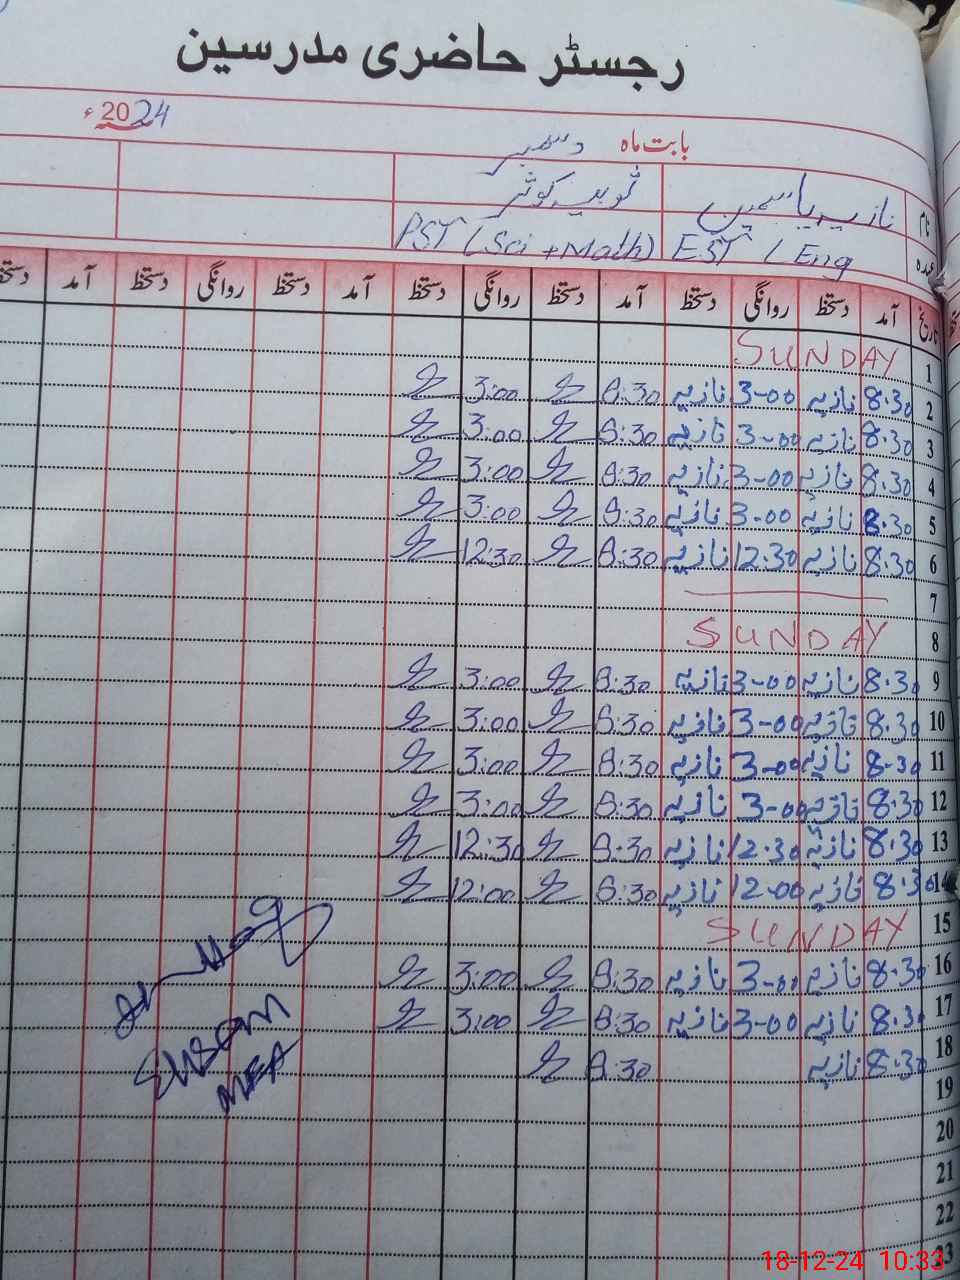 رجسٹر حاضری مدرسین
2024ء
بابت ماہ دسمبر
نام نازیہ یاسمین ثوبیہ کوثر
عہدہ EST / Eng PST (Sci + Math)
تاریخ آمد دستخط روانگی دستخط آمد دستخط روانگی دستخط آمد دستخط روانگی دستخط آمد دستخط
1 SUNDAY
2 8.30 نازیہ 3-00 نازیہ 8:30 3:00
3 8.30 نازیہ 3-00 نازیہ 8:30 3:00
4 8.30 نازیہ 3-00 نازیہ 8:30 3:00
5 8.30 نازیہ 3-00 نازیہ 8:30 3:00
6 8.30 نازیہ 12.30 نازیہ 8:30 12:30
7
8 SUNDAY
9 8.30 نازیہ 3-00 نازیہ 8:30 3:00
10 8.30 نازیہ 3-00 نازیہ 8:30 3:00
11 8-30 نازیہ 3-00 نازیہ 8:30 3:00
12 8.30 نازیہ 3-00 نازیہ 8:30 3:00
13 8.30 نازیہ 12.30 نازیہ 8:30 12:30
14 8.30 نازیہ 12-00 نازیہ 8:30 12:00
15 SUNDAY
16 8.30 نازیہ 3-00 نازیہ 8:30 3:00
17 8.30 نازیہ 3-00 نازیہ 8:30 3:00
18 8.30 نازیہ 8:30
19
20
21
22
23
Ehsan
MEA
18-12-24 10:33